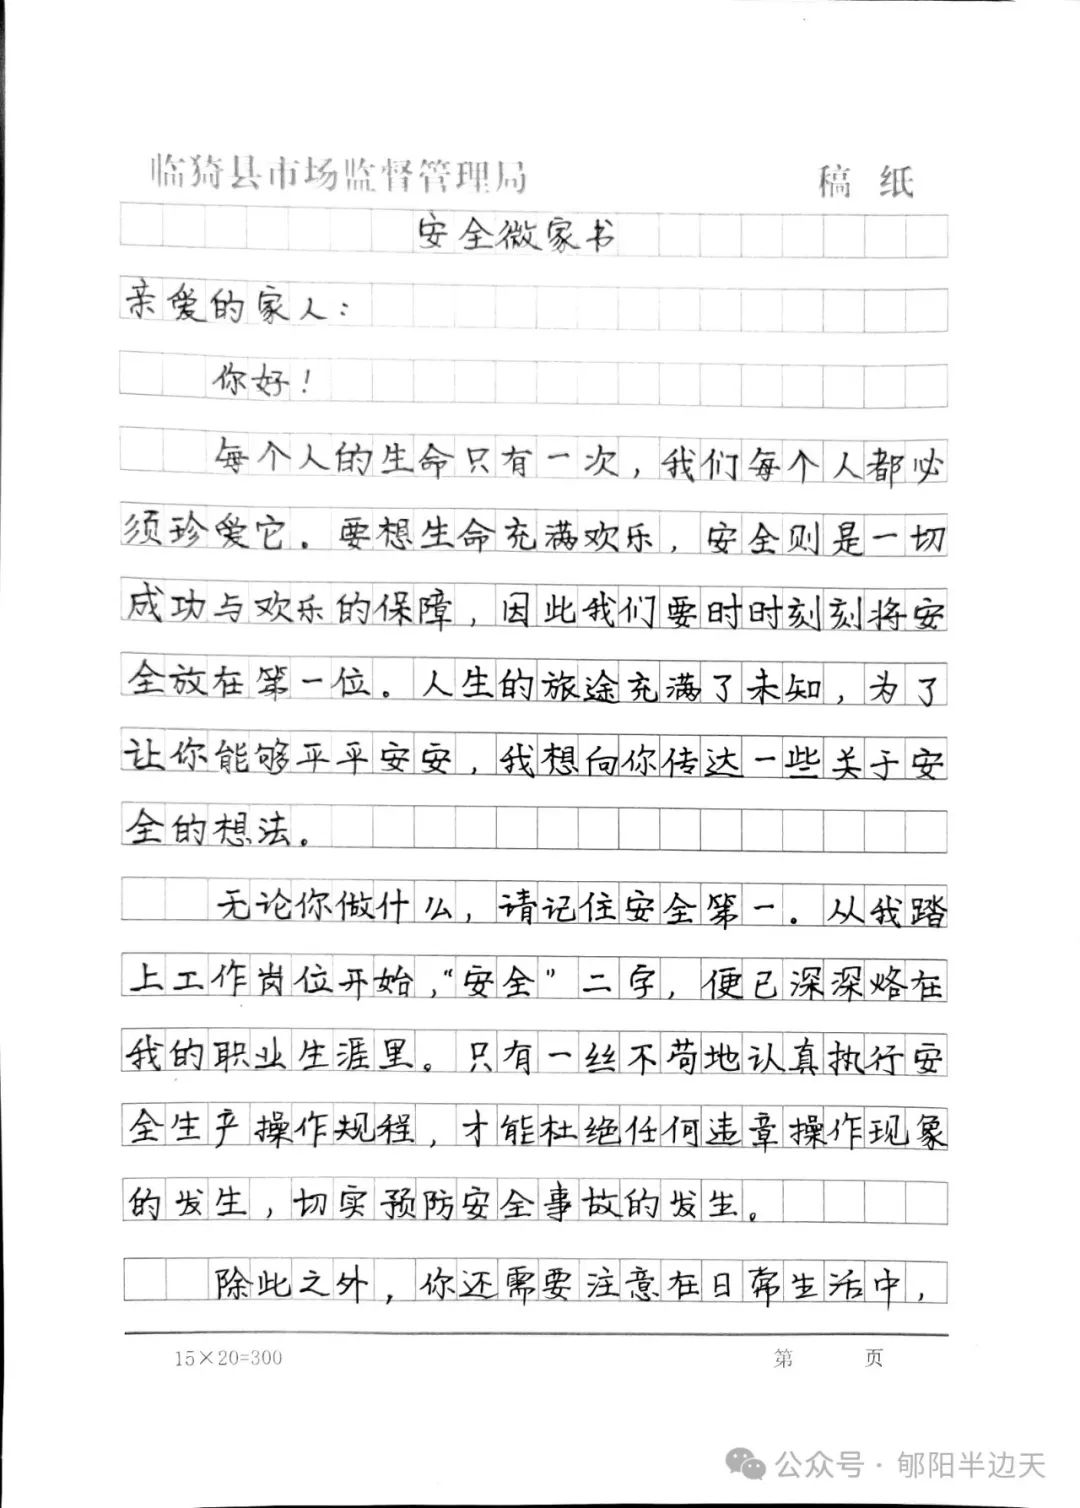 临猗县市场监督管理局 稿 纸
安全微家书
亲爱的家人：
你好！
每个人的生命只有一次，我们每个人都必
须珍爱它。要想生命充满欢乐，安全则是一切
成功与欢乐的保障，因此我们要时时刻刻将安
全放在第一位。人生的旅途充满了未知，为了
让你能够平平安安，我想向你传达一些关于安
全的想法。
无论你做什么，请记住安全第一。从我踏
上工作岗位开始，“安全”二字，便已深深烙在
我的职业生涯里。只有一丝不苟地认真执行安
全生产操作规程，才能杜绝任何违章操作现象
的发生，切实预防安全事故的发生。
除此之外，你还需要注意在日常生活中，
15×20=300 第 页
公众号·郇阳半边天